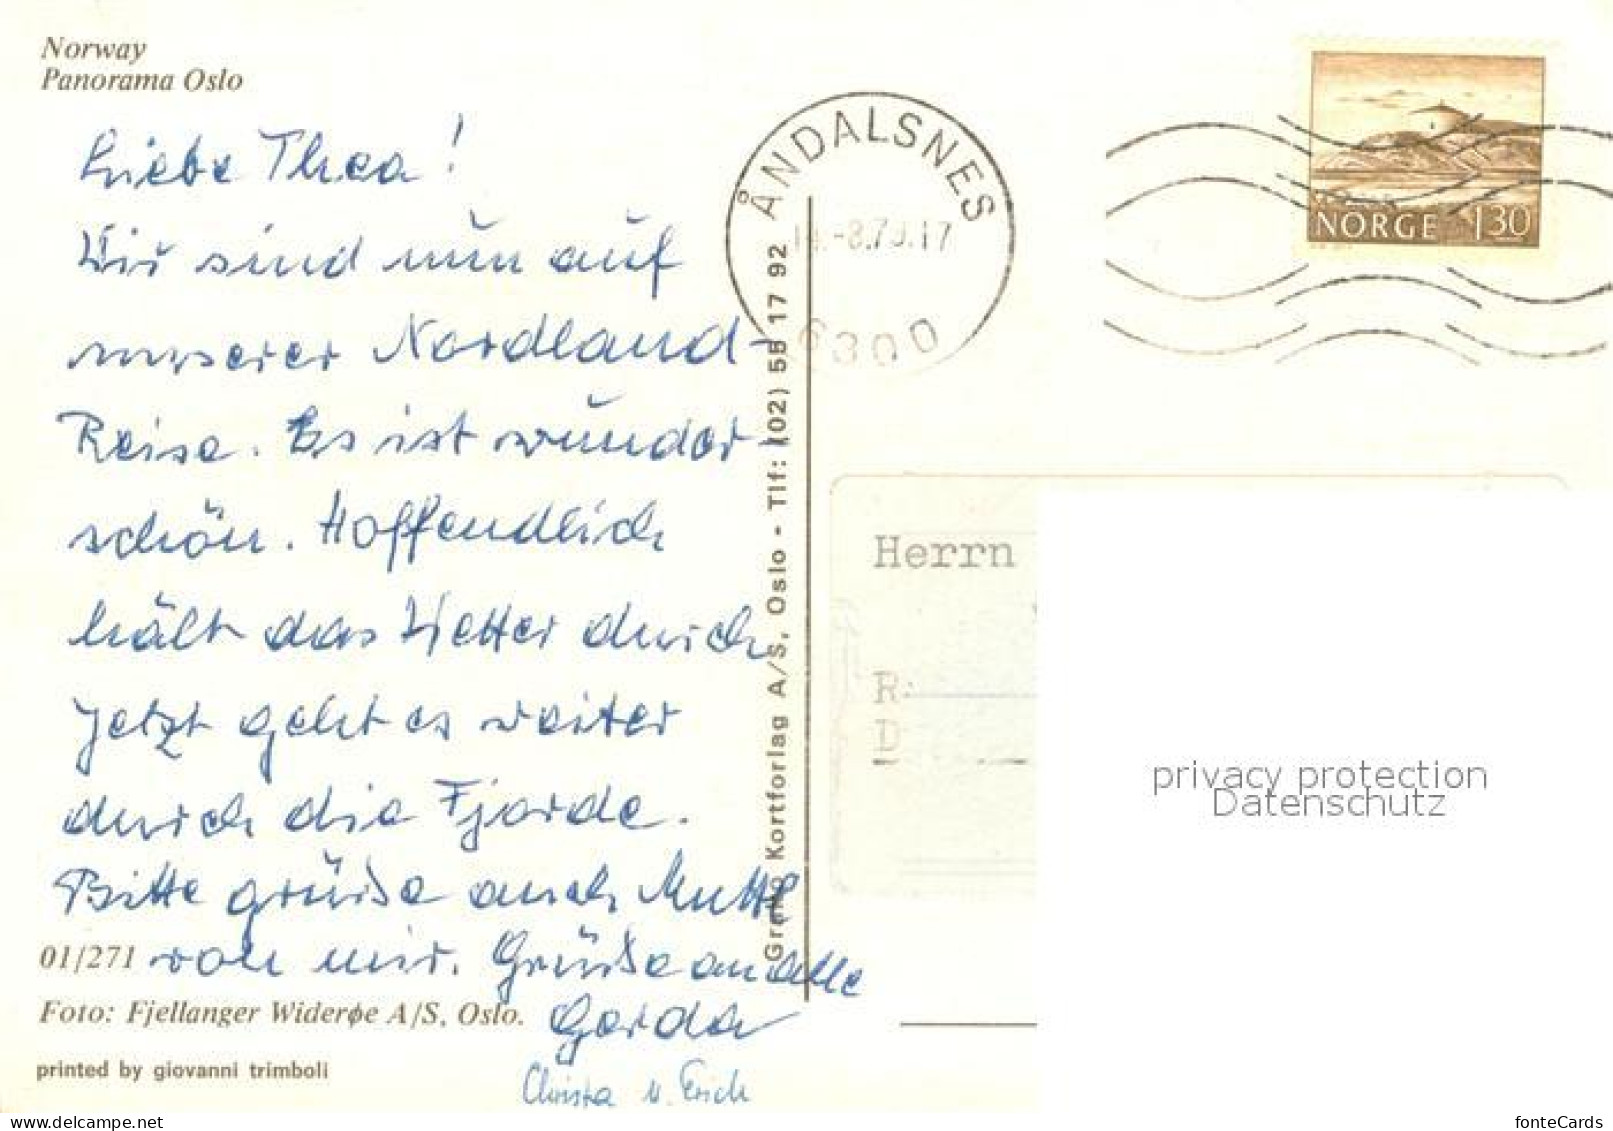 Norway
Panorama Oslo
Liebe Thea!
Wir sind nun auf
unserer Nordland-
Reise. Es ist wunder-
schön. Hoffendlich
hält das Wetter durch
Jetzt geht es weiter
durch die Fjorde.
Bitte grüße auch Mutti
von mir. Grüße an alle
Gerda
Christa u. Erich
01/271
Foto: Fjellanger Widerøe A/S, Oslo.
printed by giovanni trimboli
Kortforlag A/S, Oslo - Tlf: (02) 55 17 92
ÅNDALSNES
-8.79.17
6300
NORGE 130
Herrn
R
D
privacy protection
Datenschutz
fonteCards